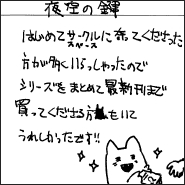 夜空の
はじめてサークルに寄ってくださった
スペース
方が多くいらっしゃったので
シリーズをまとめて最新刊まで
買ってくださる方もいて
うれしかったです!!